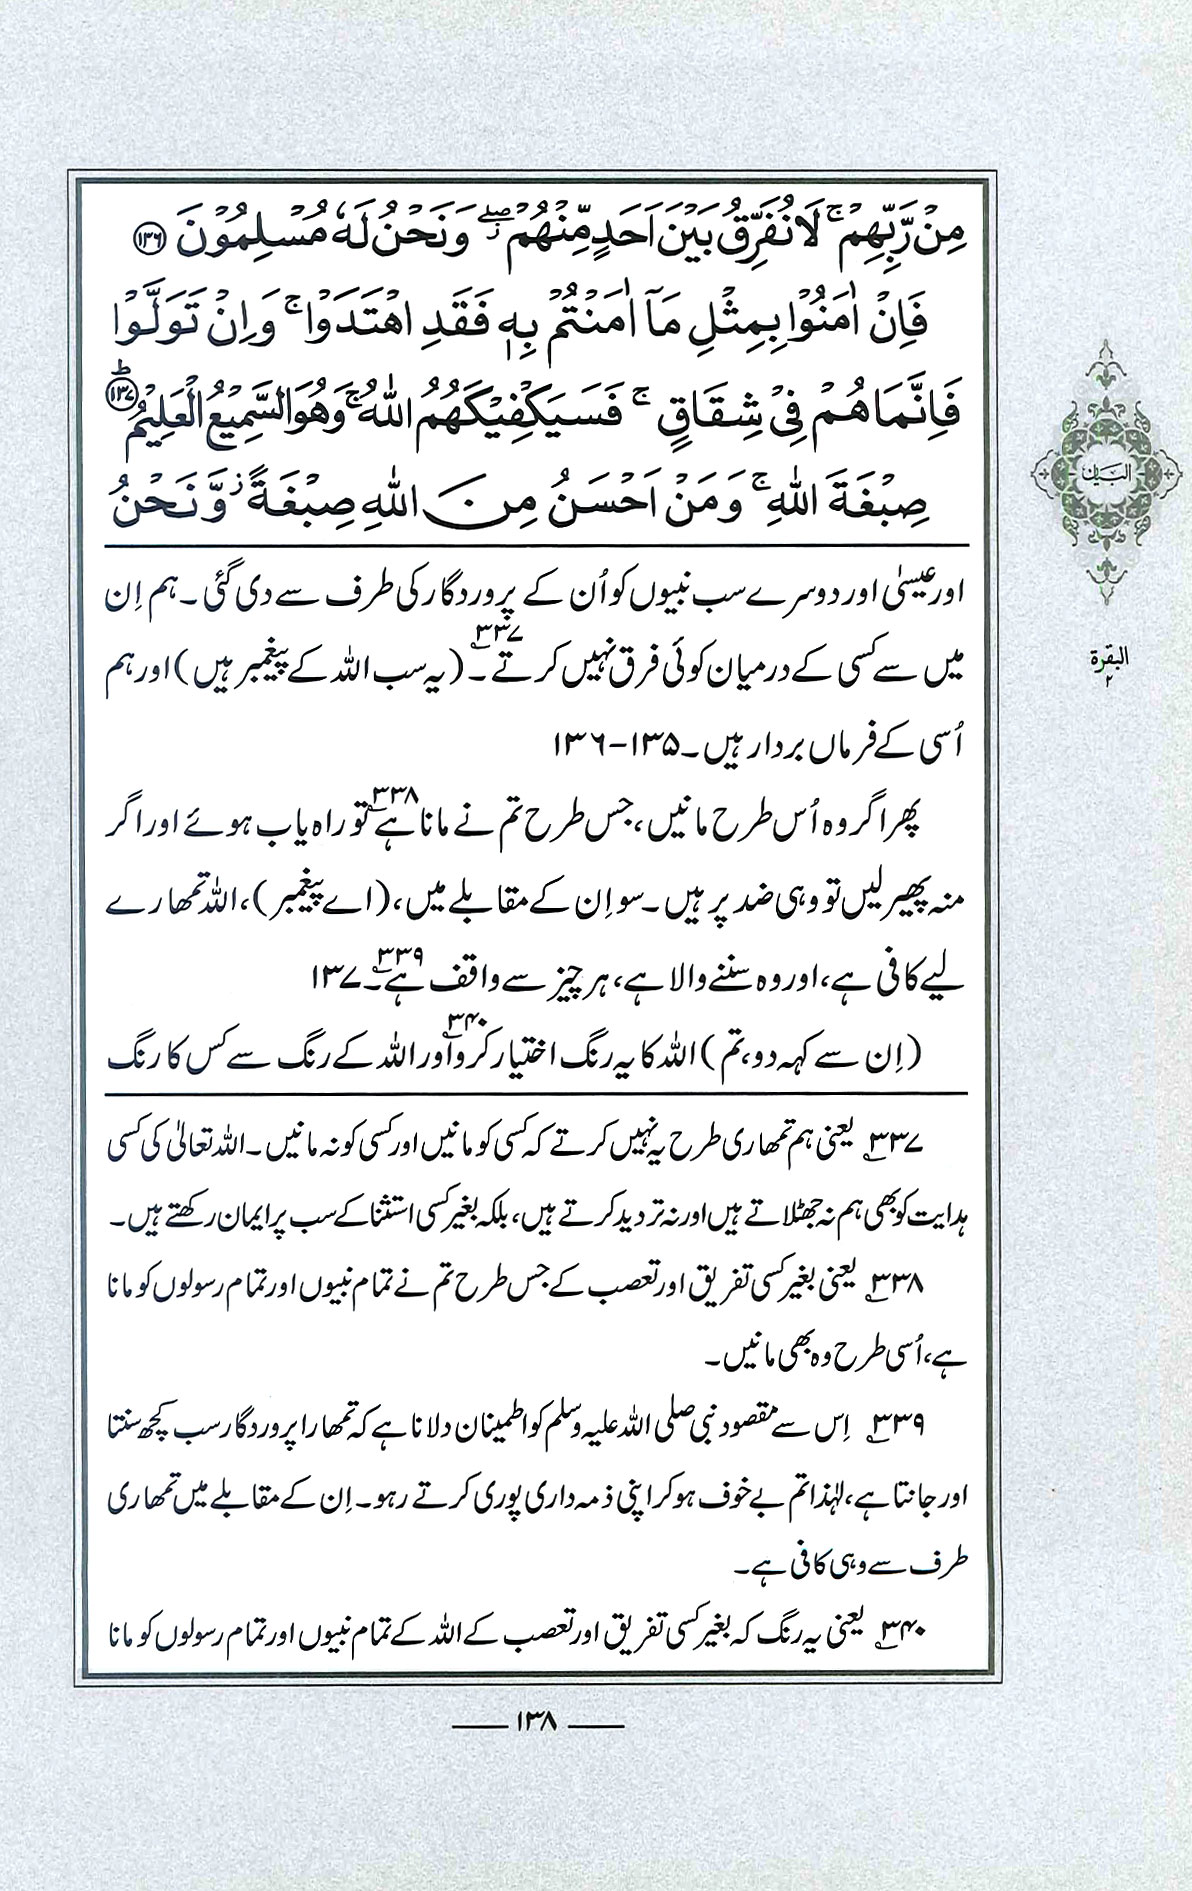 مِنْ رَّبِّهِمْ ۚ لَا نُفَرِّقُ بَيْنَ اَحَدٍ مِّنْهُمْ ۖ وَنَحْنُ لَهٗ مُسْلِمُوْنَ ﴿۱۳۶﴾
فَاِنْ اٰمَنُوْا بِمِثْلِ مَآ اٰمَنْتُمْ بِهٖ فَقَدِ اهْتَدَوْا ۚ وَاِنْ تَوَلَّوْا
فَاِنَّمَا هُمْ فِیْ شِقَاقٍ ۚ فَسَيَكْفِيْكَهُمُ اللّٰهُ ۚ وَهُوَ السَّمِيْعُ الْعَلِيْمُ ﴿۱۳۷﴾ؕ
صِبْغَةَ اللّٰهِ ۚ وَمَنْ اَحْسَنُ مِنَ اللّٰهِ صِبْغَةً ز وَّنَحْنُ
البیان
البقرۃ
۲
اور عیسیٰ اور دوسرے سب نبیوں کو اُن کے پروردگار کی طرف سے دی گئی۔ ہم اِن
میں سے کسی کے درمیان کوئی فرق نہیں کرتے۔۳۳۷ (یہ سب اللہ کے پیغمبر ہیں) اور ہم
اُسی کے فرماں بردار ہیں۔ ۱۳۵-۱۳۶
پھر اگر وہ اُس طرح مانیں، جس طرح تم نے مانا ہے۳۳۸ تو راہ یاب ہوئے اور اگر
منہ پھیر لیں تو وہی ضد پر ہیں۔ سو اِن کے مقابلے میں، (اے پیغمبر)، اللہ تمھارے
لیے کافی ہے، اور وہ سننے والا ہے، ہر چیز سے واقف ہے۔۳۳۹ ۱۳۷
(اِن سے کہہ دو، تم) اللہ کا یہ رنگ اختیار کرو۳۴۰ اور اللہ کے رنگ سے کس کا رنگ
۳۳۷ یعنی ہم تمھاری طرح یہ نہیں کرتے کہ کسی کو مانیں اور کسی کو نہ مانیں۔ اللہ تعالیٰ کی کسی
ہدایت کو بھی ہم نہ جھٹلاتے ہیں اور نہ تردید کرتے ہیں، بلکہ بغیر کسی استثنا کے سب پر ایمان رکھتے ہیں۔
۳۳۸ یعنی بغیر کسی تفریق اور تعصب کے جس طرح تم نے تمام نبیوں اور تمام رسولوں کو مانا
ہے، اُسی طرح وہ بھی مانیں۔
۳۳۹ اِس سے مقصود نبی صلی اللہ علیہ وسلم کو اطمینان دلانا ہے کہ تمھارا پروردگار سب کچھ سنتا
اور جانتا ہے، لہٰذا تم بے خوف ہو کر اپنی ذمہ داری پوری کرتے رہو۔ اِن کے مقابلے میں تمھاری
طرف سے وہی کافی ہے۔
۳۴۰ یعنی یہ رنگ کہ بغیر کسی تفریق اور تعصب کے اللہ کے تمام نبیوں اور تمام رسولوں کو مانا
۱۳۸